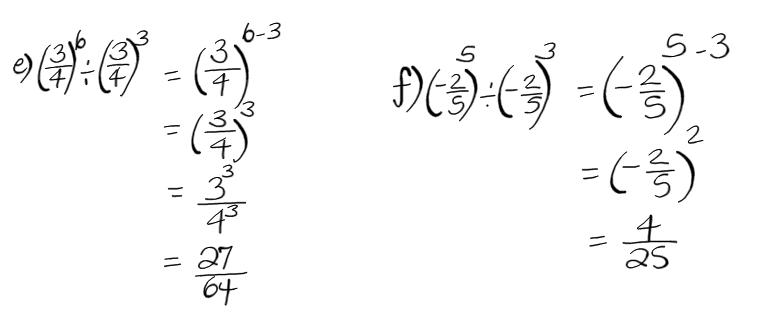 e) (3/4)^6 ÷ (3/4)^3 = (3/4)^(6-3)
= (3/4)^3
= 3^3/4^3
= 27/64
f) (-2/5)^5 ÷ (-2/5)^3 = (-2/5)^(5-3)
= (-2/5)^2
= 4/25